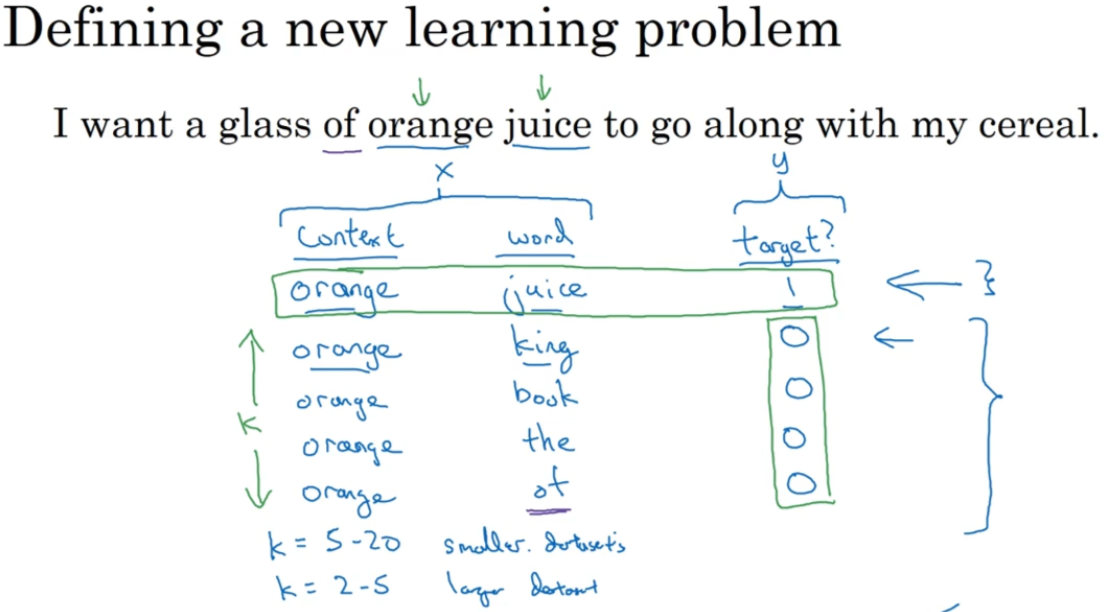 Defining a new learning problem
I want a glass of orange juice to go along with my cereal.
x y
context word target?
orange juice 1
orange king 0
orange book 0
k
orange the 0
orange of 0
k = 5-20 smaller datasets
k = 2-5 larger dataset